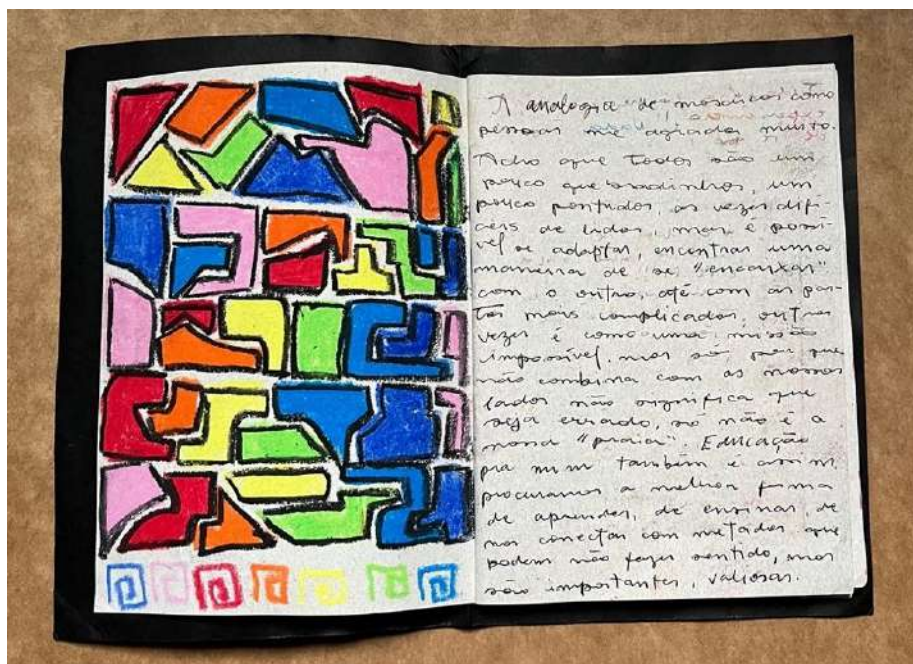 A analogia de mosaicos como
pessoas me agradou muito.
Acho que todos são um
pouco quebradinhos, um
pouco pontudos, as vezes difí-
ceis de lidar, mas é possí-
vel se adaptar, encontrar uma
maneira de se "encaixar"
com o outro, até com as par-
tes mais complicadas, outras
vezes é como uma missão
impossível. mas só por que
não combina com os nossos
lados não significa que
seja errado, só não é a
nossa "praia". Educação
pra mim também é assim
procuramos a melhor forma
de aprender, de ensinar, de
nos conectar com metades que
podem não fazer sentido, mas
são importantes, valiosas.